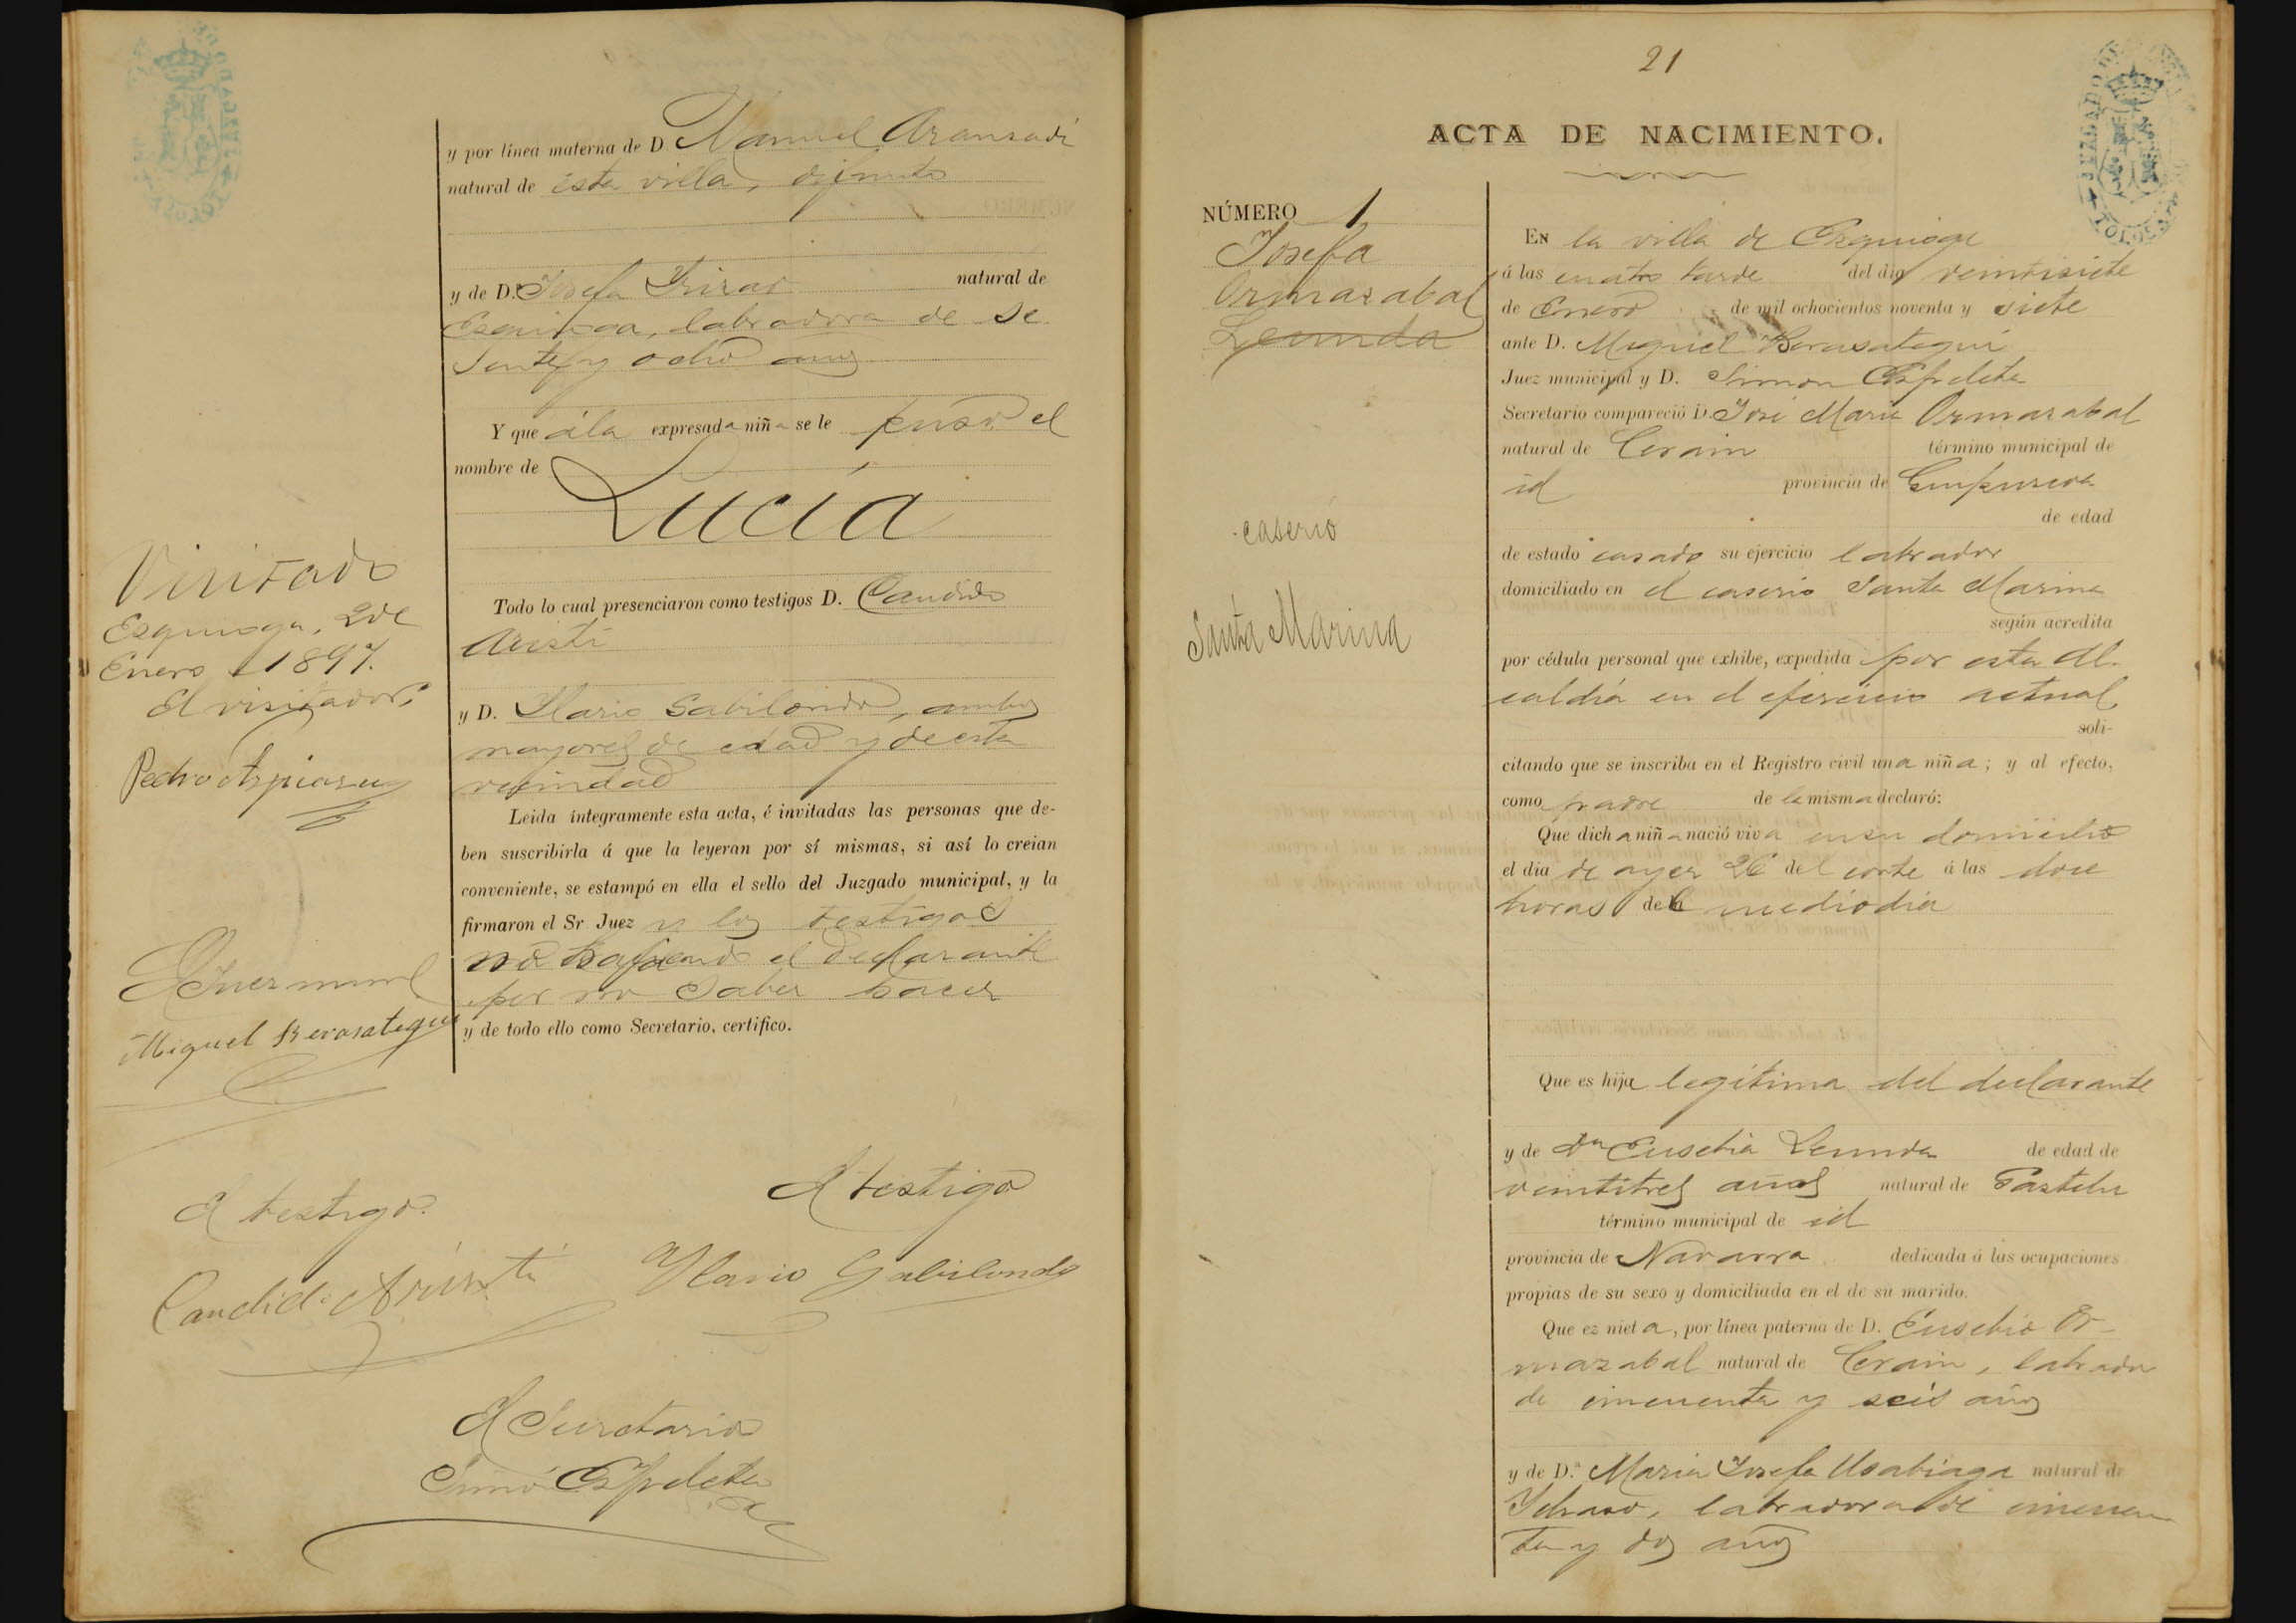 y por línea materna de D. Manuel Aransadi
natural de esta villa, difunto
y de D.ª Josefa Yrizar natural de
Esquioga, labradora de se
senta y ocho años
Y que á la expresada niña se le puso el
nombre de
Lucía
Todo lo cual presenciaron como testigos D. Candido
Aristi
y D. Ylario Gabilondo, ambos
mayores de edad y de esta
vecindad
Leida íntegramente esta acta, é invitadas las personas que de-
ben suscribirla á que la leyeran por sí mismas, si así lo creian
conveniente, se estampó en ella el sello del Juzgado municipal, y la
firmaron el Sr. Juez y los testigos
no haciendo el declarante
por no saber hacer
y de todo ello como Secretario, certifico.
Visitado
Ezquioga, 2 de
Enero 1897.
El visitador,
Pedro Aspiazu
El Juez munl
Miguel Berasategui
El testigo.
Candido Aristi
El testigo
Ylario Gabilondo
El Secretario
Simon Ezpeleta
21
ACTA DE NACIMIENTO.
JUZGADO DE
TOLOSA
NÚMERO 1
Josefa
Ormazabal
Leunda
caserio
Santa Marina
En la villa de Ezquioga
á las cuatro tarde del dia veintisiete
de Enero de mil ochocientos noventa y siete
ante D. Miguel Berasategui
Juez municipal y D. Simon Ezpeleta
Secretario compareció D. José Maria Ormazabal
natural de Cerain término municipal de
id provincia de Guipuzcoa
de edad
de estado casado su ejercicio labrador
domiciliado en el caserio Santa Marina
según acredita
por cédula personal que exhibe, expedida por esta Al-
caldía en el ejercicio actual
soli-
citando que se inscriba en el Registro civil una niña; y al efecto,
como padre de la misma declaró:
Que dicha niña nació viva en su domicilio
el dia de ayer 26 del corte á las doce
horas del mediodia
Que es hija legítima del declarante
y de Dª Eusebia Leunda de edad de
veintitres años natural de Gaztelu
término municipal de id
provincia de Navarra dedicada á las ocupaciones
propias de su sexo y domiciliada en el de su marido.
Que ez nieta, por línea paterna de D. Eusebio Or-
mazabal natural de Cerain, labrador
de cincuenta y seis años
y de D.ª Maria Josefa Usabiaga natural de
Ychaso, labradora de cincuen
ta y dos años